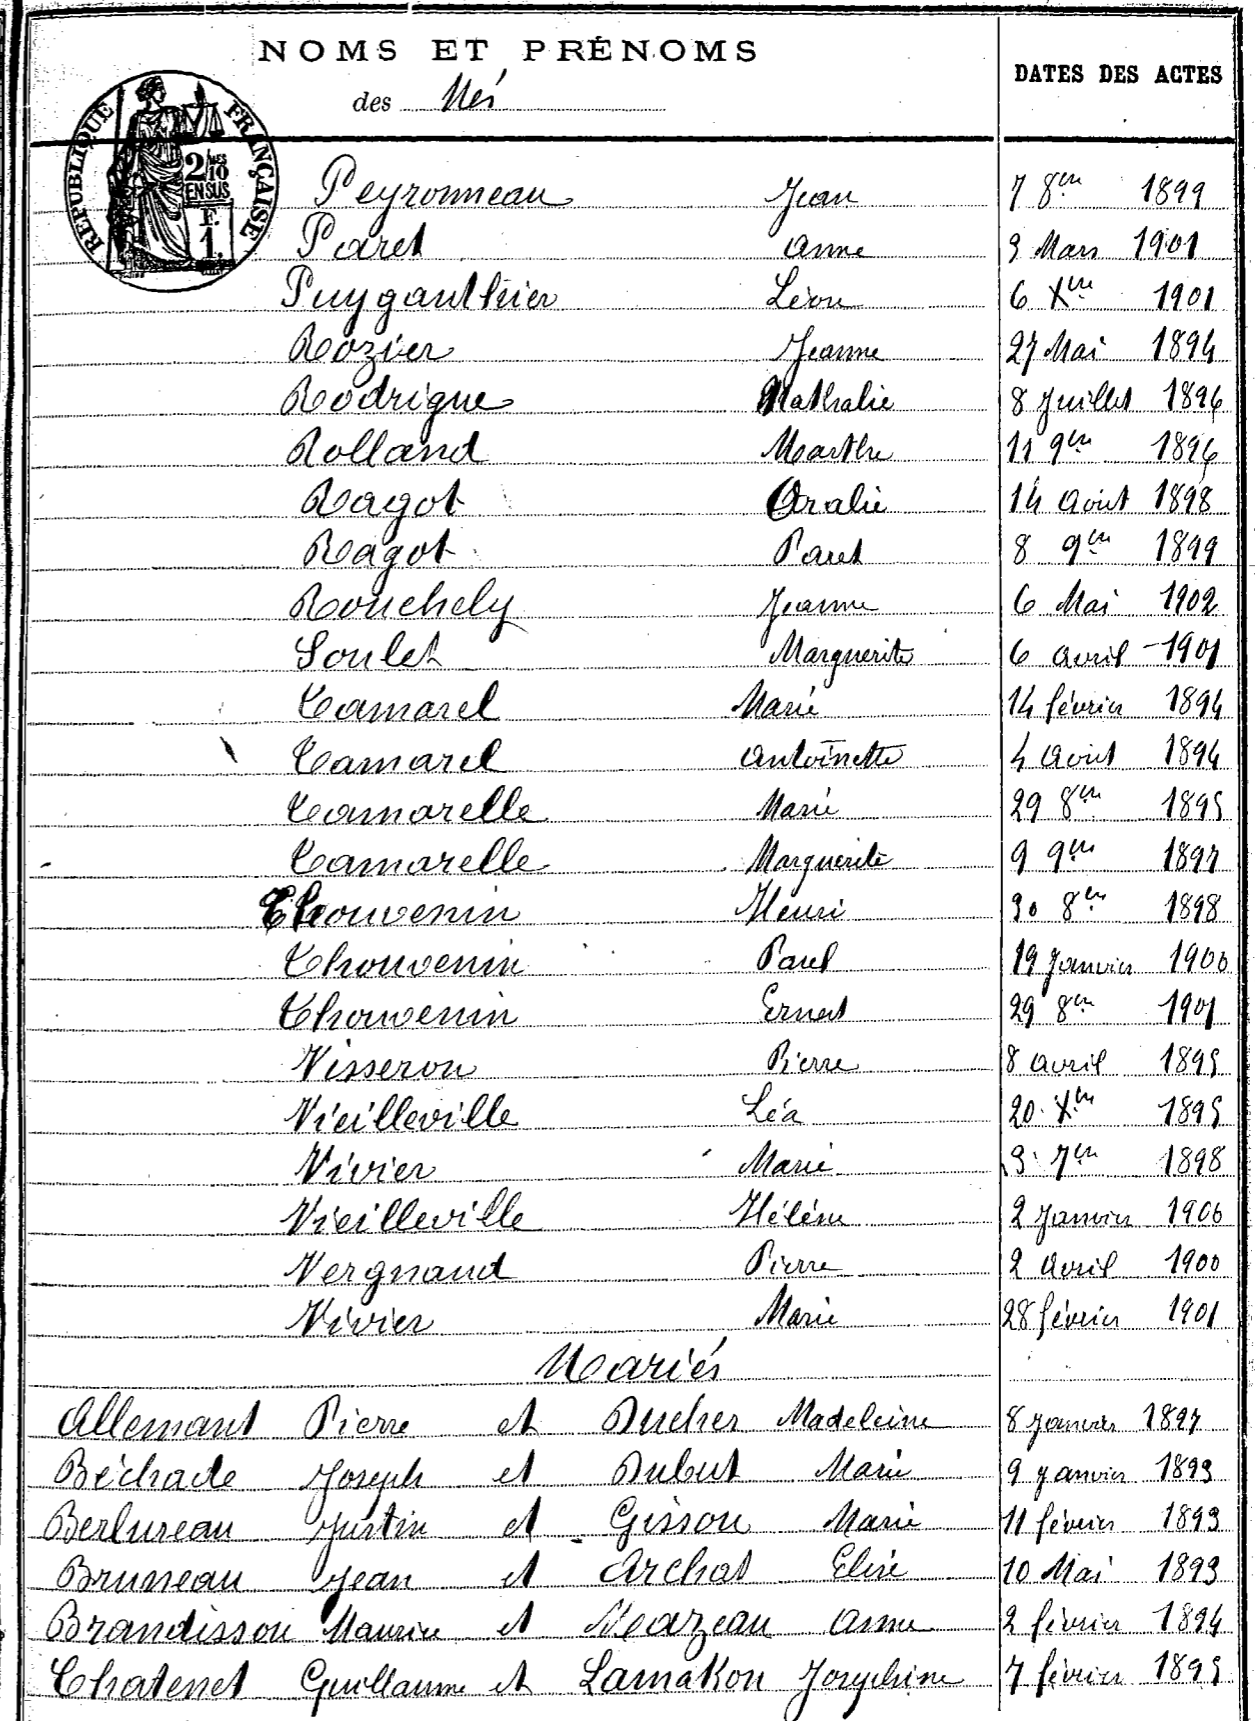 NOMS ET PRÉNOMS
des Nés
DATES DES ACTES
RÉPUBLIQUE FRANÇAISE
2/10 MES
EN SUS
F.
1.
Peyronneau Jean 7 8bre 1899
Paret Anne 3 Mars 1901
Puygauthier Léon 6 Xbre 1901
Rozier Jeanne 27 Mai 1894
Rodrigue Nathalie 8 Juillet 1896
Rolland Marthe 11 9bre 1896
Ragot Oralie 14 Août 1898
Ragot Paul 8 9bre 1899
Rouchely Jeanne 6 Mai 1902
Soulet Marguerite 6 avril 1901
Camarel Marie 14 février 1894
Camarel Antoinette 4 Août 1894
Camarelle Marie 29 8bre 1895
Camarelle Marguerite 9 9bre 1897
Thouvenin Henri 30 8bre 1898
Thouvenin Paul 19 Janvier 1900
Thouvenin Ernest 29 8bre 1901
Visseron Pierre 8 avril 1895
Vieilleville Léa 20 Xbre 1895
Vivier Marie 3 7bre 1898
Vieilleville Hélène 2 Janvier 1900
Vergnaud Pierre 2 Avril 1900
Vivier Marie 28 février 1901
Mariés
Allemant Pierre et Ducher Madeleine 8 Janvier 1897
Béchade Joseph et Dubut Marie 9 Janvier 1893
Berlureau Justin et Gisson Marie 11 février 1893
Bruneau Jean et Archat Elise 10 Mai 1893
Brandisson Maurice et Mazeau Anne 2 février 1894
Chatenet Guillaume et Lamakon Joséphine 7 février 1895